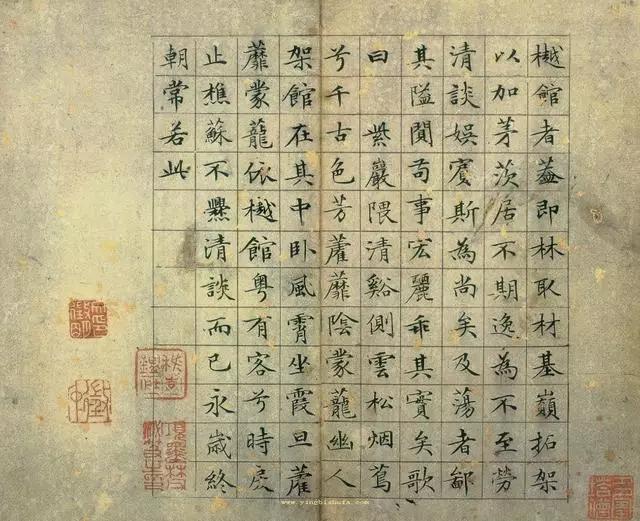 樾館者葢即林取材基嶺拓架
以加茅茨居不期逸為不至勞
清談娛賓斯為尚矣及蕩者鄙
其隘閴苟事宏麗乖其實矣歌
曰 紫巖隈清谿側雲松烟蔦
兮千古色芳藿蘼陰蒙蘢幽人
架館在其中卧風霄坐霞旦藿
蘼蒙蘢依樾館粵有客兮時戾
止樵蘇不爨清談而已永歲終
朝常若此
www.yingbishufa.com